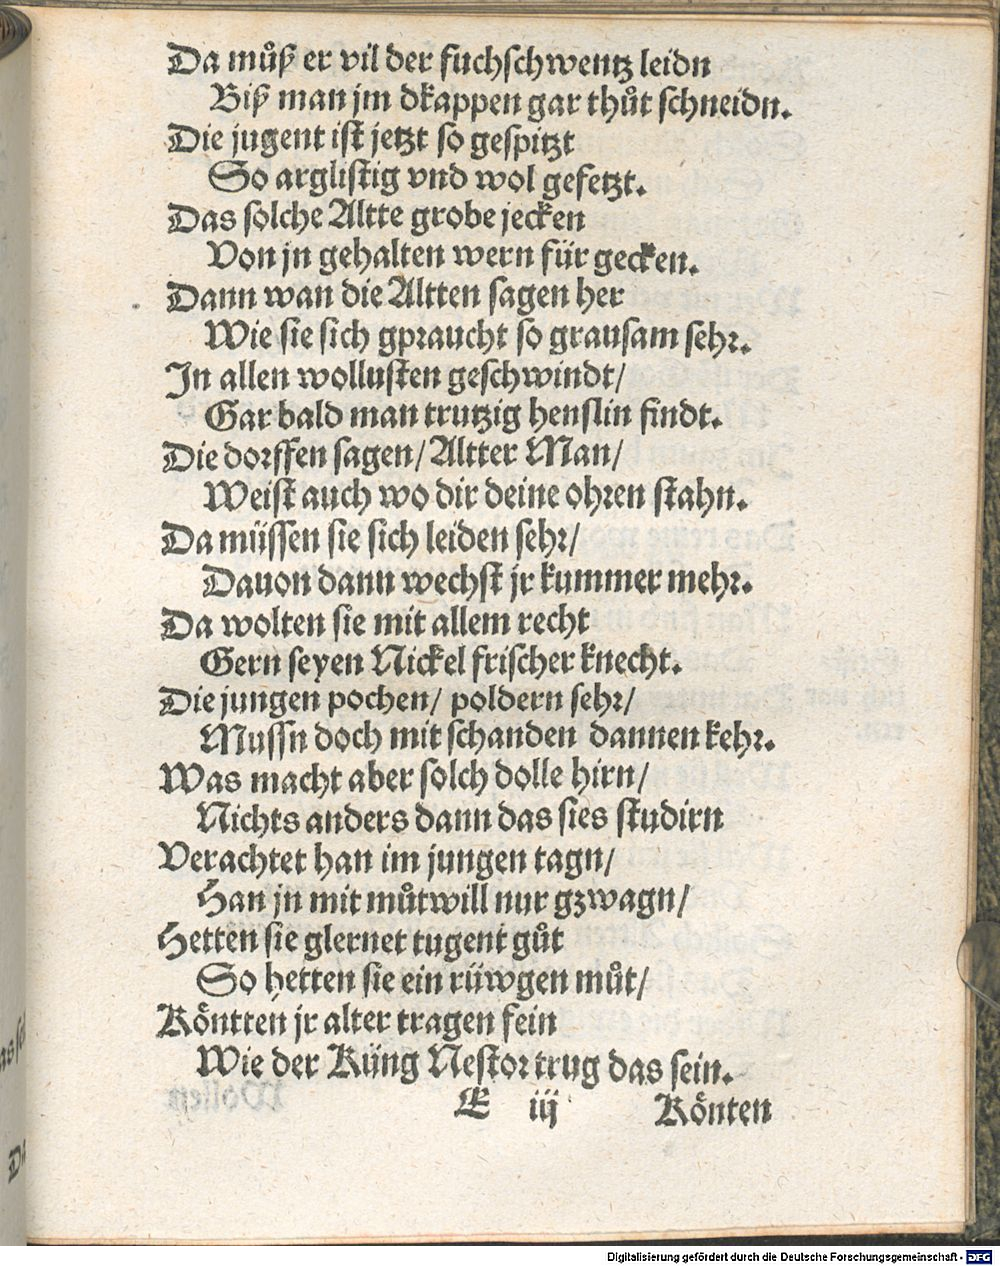 Da můß er vil der fuchſchwentz leidn
Biß man jm dkappen gar thůt ſchneidn.
Die jugent iſt jetzt ſo geſpitzt
So argliſtig vnd wol gefetzt.
Das ſolche Altte grobe jecken
Von jn gehalten wern für gecken.
Dann wan die Altten ſagen her
Wie ſie ſich gpraucht ſo grauſam ſehr.
In allen wolluſten geſchwindt/
Gar bald man trutzig henſlin findt.
Die dorffen ſagen/ Altter Man/
Weiſt auch wo dir deine ohren ſtahn.
Da müſſen ſie ſich leiden ſehr/
Dauon dann wechſt jr kummer mehr.
Da wolten ſie mit allem recht
Gern ſeyen Nickel friſcher knecht.
Die jungen pochen/ poldern ſehr/
Muſſn doch mit ſchanden dannen kehr.
Was macht aber ſolch dolle hirn/
Nichts anders dann das ſies ſtudirn
Verachtet han im jungen tagn/
Han jn mit můtwill nur gzwagn/
Hetten ſie glernet tugent gůt
So hetten ſie ein rüwgen můt/
Köntten jr alter tragen fein
Wie der Küng Neſtor trug das ſein.
E iij Könten
Digitalisierung gefördert durch die Deutsche Forschungsgemeinschaft - DFG